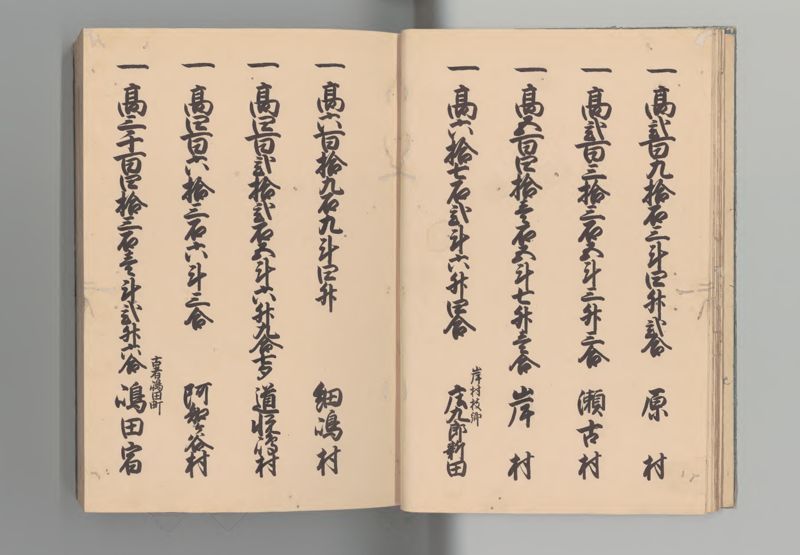 一 高弐百九拾石三斗四升弐合 原村
一 高弐百三拾三石五斗三升三合 瀬古村
一 高五百四拾壱石五斗七升壱合 岸村
一 高六拾七石弐斗六升四合 岸村枝郷 庄九郎新田
一 高六百拾九石九斗四升 細嶋村
一 高四百弐拾弐石五斗六升九合七夕 道悦嶋村
一 高四百六拾三石六斗三合 阿知ヶ谷村
一 高三千百四拾三石壱斗弐升六合 古者嶋田町 嶋田宿